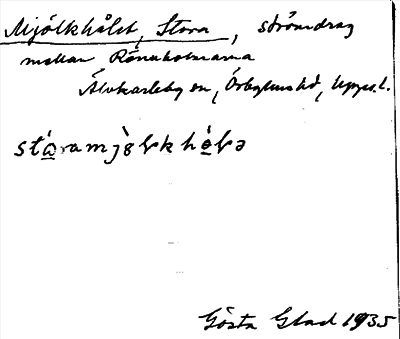 Mjölkhålet, Stora, strömdrag
mellan Rönnholmarna
Älvkarleby sn, Örbyhus hd, Upps. l.
stάramjö̀lkhɷ́lə
Gösta Glad 1935